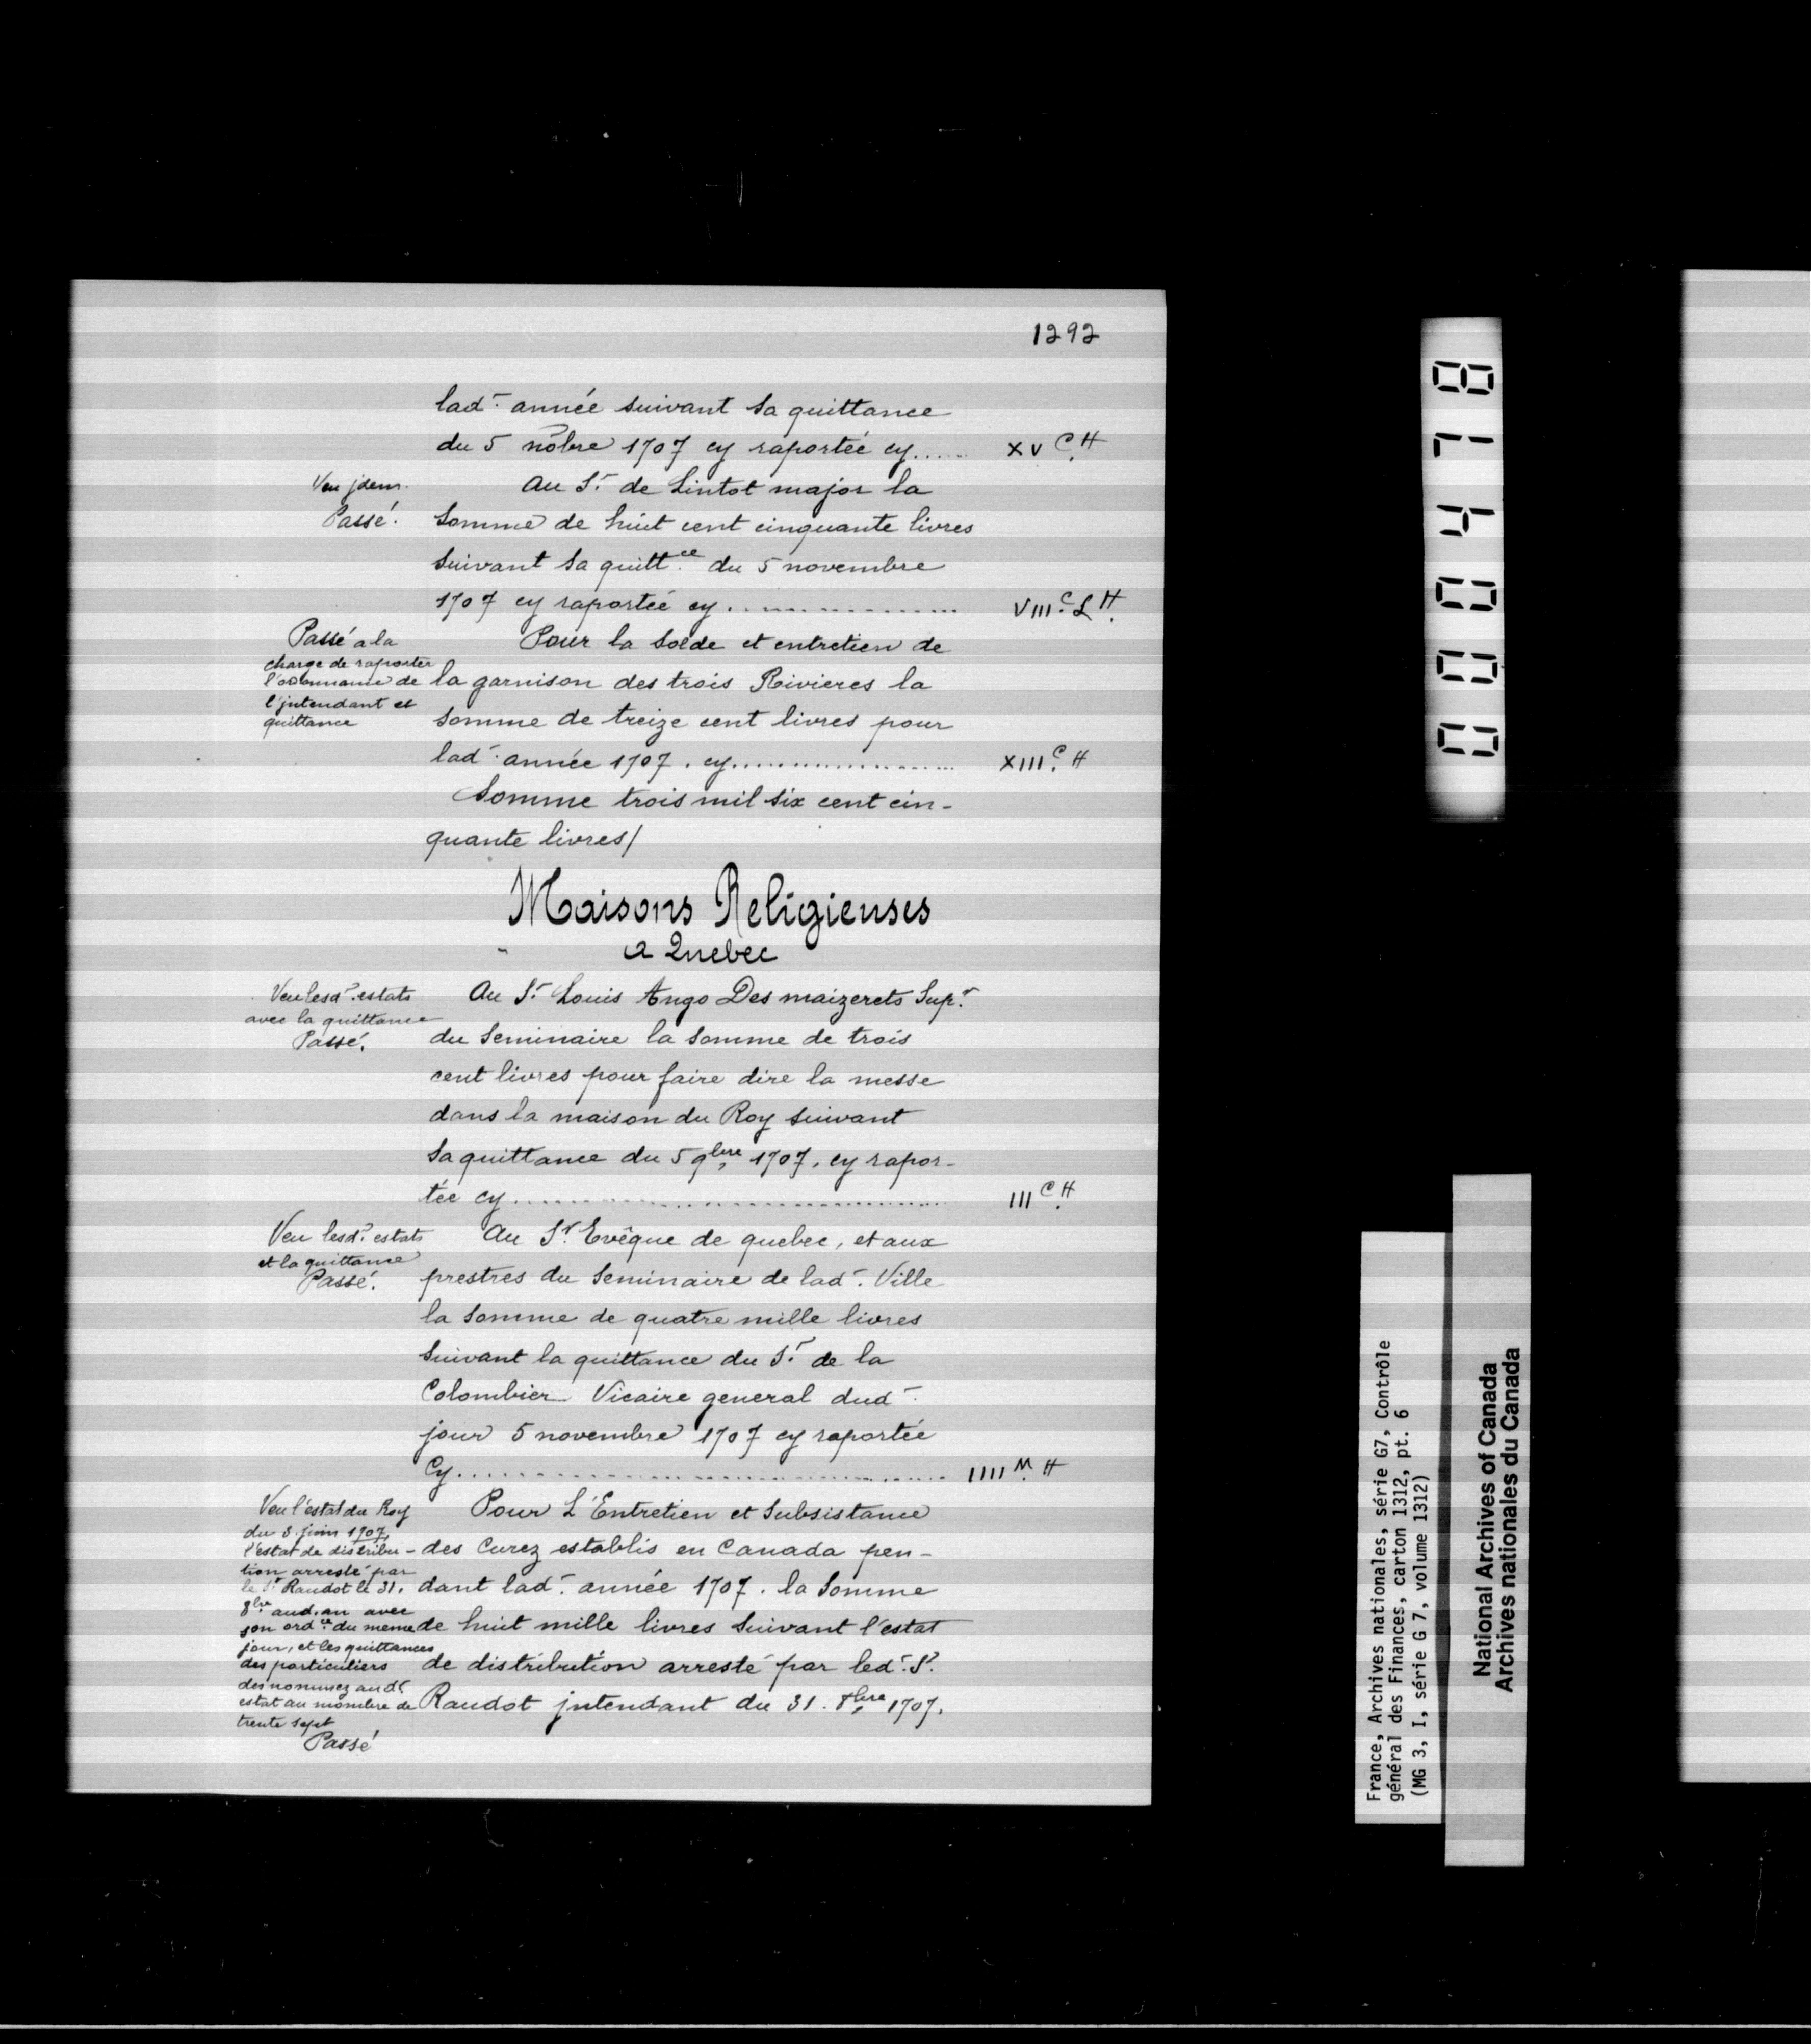 1292
lad.t année suivant sa quittance
du 5 nobre 1707 cy raportée cy..... XV C. ₶
Veu jdem.
Passé.
Au S.r de Lintot major la
somme de huit cent cinquante livres
suivant sa quitt.ce du 5 novembre
1707 cy raportée cy................. VIII C. L ₶.
Passé a la
charge de raporter
l'ordonnance de
l'jntendant et
quittance
Pour la solde et entretien de
la garnison des trois Rivieres la
somme de treize cent livres pour
lad.t année 1707. cy................... XIII C. ₶
Somme trois mil six cent cin-
quante livres/
Maisons Religieuses
a Quebec
Veu lesd.s estats
avec la quittance
Passé.
Au S.r Louis Ango Des maizerets Sup.r
du Seminaire la somme de trois
cent livres pour faire dire la messe
dans la maison du Roy suivant
sa quittance du 5 9bre 1707. cy rapor-
tée cy................................. III C. ₶
Veu lesd.s estats
et la quittance
Passé.
Au S.r Evêque de quebec, et aux
prestres du Seminaire de lad.t Ville
la somme de quatre mille livres
suivant la quittance du S.r de la
Colombier Vicaire general dud.t
jour 5 novembre 1707 cy raportée
Cy...................................... IIII M. ₶
Veu l'estat du Roy
du 3. juin 1707,
l'estat de distribu-
tion arresté par
le S.r Raudot le 31.
8bre aud. an avec
son ord.ce du meme
jour, et les quittances
des particuliers
desnommez aud.t
estat au nombre de
trente sept
Passé
Pour L'Entretien et Subsistance
des Curez establis en Canada pen-
dant lad.t année 1707. la Somme
de huit mille livres suivant l'estat
de distribution arresté par led.t S.r
Raudot jntendant du 31. 8bre 1707.
000478
France, Archives nationales, série G7, Contrôle
général des Finances, carton 1312, pt. 6
(MG 3, I, série G 7, volume 1312)
National Archives of Canada
Archives nationales du Canada